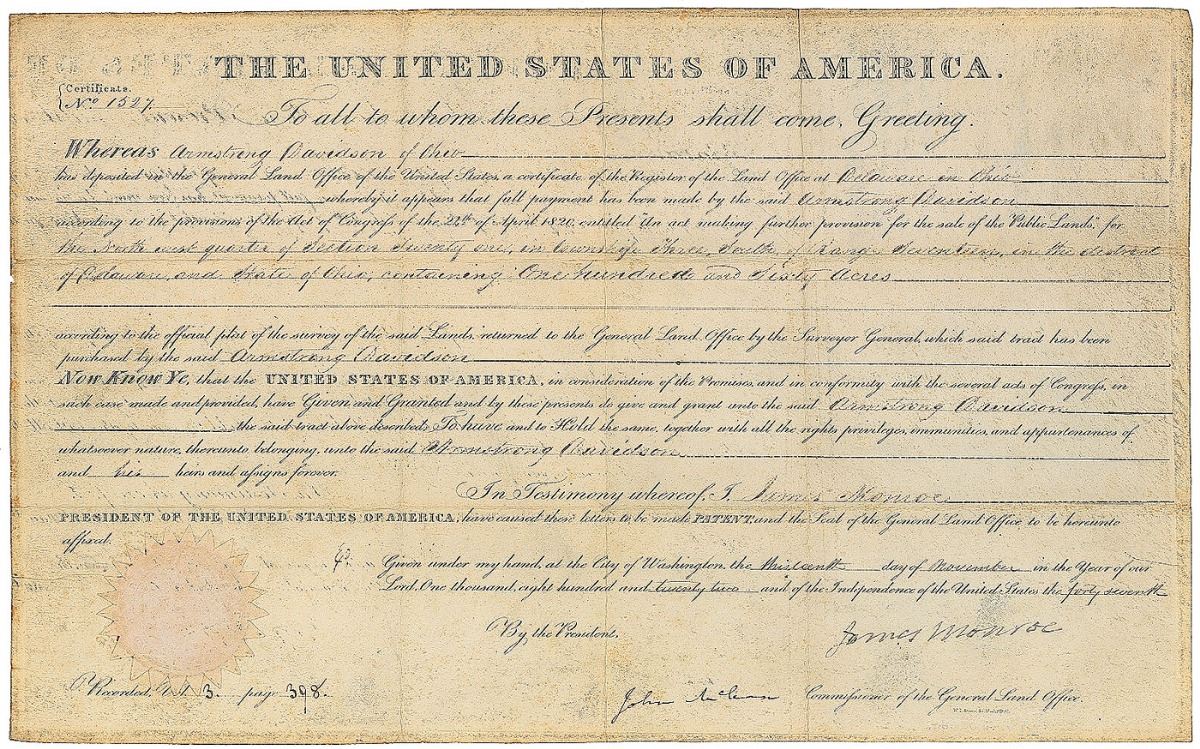 THE UNITED STATES OF AMERICA.
Certificate.
No. 1527.
To all to whom these Presents shall come, Greeting.
Whereas Armstrong Davidson of Ohio
has deposited in the General Land Office of the United States, a certificate of the Register of the Land Office at Delaware in Ohio
whereby it appears that full payment has been made by the said Armstrong Davidson
according to the provisions of the Act of Congress of the 24th of April 1820, entitled "An act making further provision for the sale of the Public Lands," for
the North west quarter of Section Twenty one, in township Three, South, of Range Seventeen, in the district
of Delaware, and State of Ohio, containing One hundred and Sixty Acres
according to the official plat of the survey of the said Lands, returned to the General Land Office by the Surveyor General, which said tract has been
purchased by the said Armstrong Davidson
Now Know Ye, that the UNITED STATES OF AMERICA, in consideration of the Premises, and in conformity with the several acts of Congress, in
such case made and provided, have Given and Granted and by these presents do give and grant unto the said Armstrong Davidson
the said tract above described: To have and to Hold the same, together with all the rights, privileges, immunities, and appurtenances of
whatsoever nature, thereunto belonging, unto the said Armstrong Davidson
and his heirs and assigns forever.
In Testimony whereof, I, James Monroe
PRESIDENT OF THE UNITED STATES OF AMERICA, have caused these letters to be made PATENT, and the Seal of the General Land Office to be hereunto
affixed.
Given under my hand, at the City of Washington, the thirteenth day of November in the Year of our
Lord, One thousand, eight hundred and twenty two and of the Independence of the United States the forty seventh
By the President,
James Monroe
Recorded, Vol. 3. page 398.
John McLean Commissioner of the General Land Office.